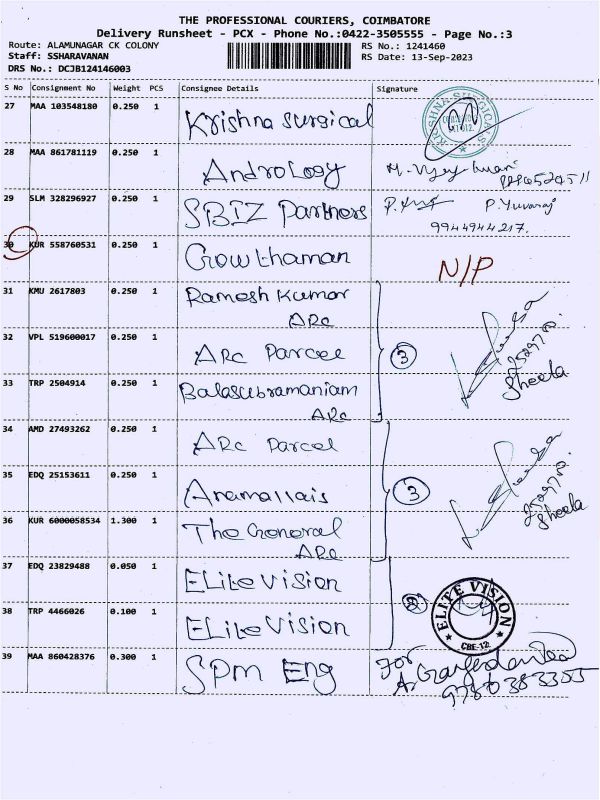 THE PROFESSIONAL COURIERS, COIMBATORE
Delivery Runsheet - PCX - Phone No.:0422-3505555 - Page No.:3
Route: ALAMUNAGAR CK COLONY RS No.: 1241460
Staff: SSHARAVANAN RS Date: 13-Sep-2023
DRS No.: DCJB124146003
S No Consignment No Weight PCS Consignee Details Signature
27 MAA 103548180 0.250 1 Krishna Surgical
KRISHNA SURGICALS
28 MAA 861781119 0.250 1 Andrology
29 SLM 328296927 0.250 1 SBIZ Partners P. Yuvaraj
9944944217.
30 KUR 558760531 0.250 1 Gowthaman N/P
31 KMU 2617803 0.250 1 Ramesh Kumar
ARC
32 VPL 519600017 0.250 1 ARC Parcel 3
Sheela
33 TRP 2504914 0.250 1 Balasubramaniam
ARC
34 AMD 27493262 0.250 1 ARC Parcel
35 EDQ 25153611 0.250 1 Anamallais 3
Sheela
36 KUR 6000058534 1.300 1 The General
ARC
37 EDQ 23829488 0.050 1 Elite Vision
38 TRP 4466026 0.100 1 Elite Vision 2
ELITE VISION
CBE-12
39 MAA 860428376 0.300 1 SPM Eng For